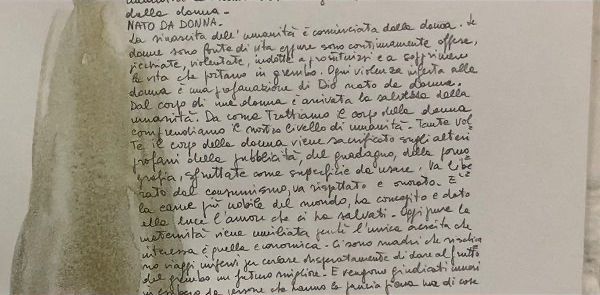 dalla donna.
NATO DA DONNA.
La rinascita dell'umanità è cominciata dalla donna. Le
donne sono fonte di vita eppure sono continuamente offese,
picchiate, violentate, indotte a prostituirsi e a sopprimere
la vita che portano in grembo. Ogni violenza inferta alla
donna è una profanazione di Dio nato da donna.
Dal corpo di una donna è arrivata la salvezza della
umanità. Da come trattiamo il corpo della donna
comprendiamo il nostro livello di umanità. Tante vol=
te il corpo della donna viene sacrificato sugli altari
profani della pubblicità, del guadagno, della porno
grafia, sfruttate come superficie da usare. Va libe
rato dal consumismo, va rispettato e onorato. E'
la carne più nobile del mondo, ha concepito e dato
alla luce l'amore che ci ha salvati. Oggi pure la
maternità viene umiliata perchè l'unica crescita che
interessa è quella economica. Ci sono madri che rischia
no viaggi impervi per cercare disperatamente di dare al frutto
del grembo un futuro migliore. E vengono giudicati numeri
in esubero da persone che hanno la pancia piena ma di cose